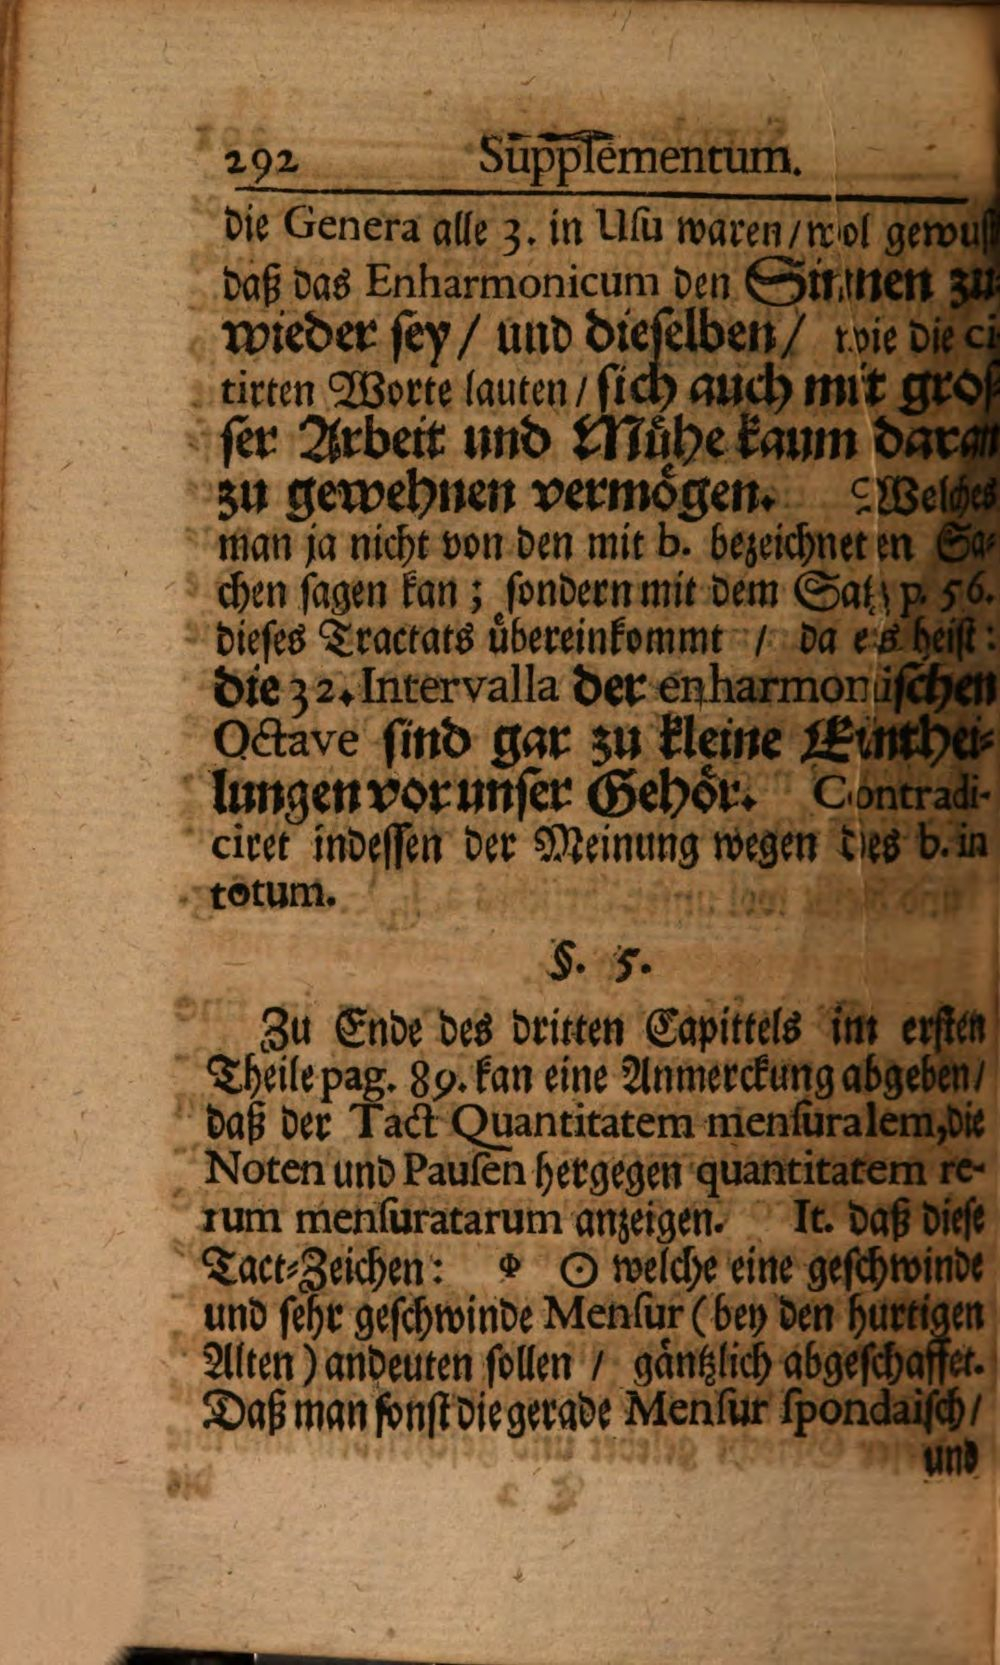 292 Supplementum.
die Genera alle 3. in Uſu waren / wol gewuſt
daß das Enharmonicum den Sinnen zu
wieder ſey / und dieſelben / wie die ci
tirten Worte lauten / ſich auch mit groſ
ſer Arbeit und Mühe kaum daran
zu gewehnen vermögen. Welches
man ja nicht von den mit b. bezeichneten Sa-
chen ſagen kan; ſondern mit dem Satz p. 56.
dieſes Tractats übereinkommt / da es heiſt:
die 32. Intervalla der enharmoniſchen
Octave ſind gar zu kleine Einthei-
lungen vor unſer Gehör. Contradi-
ciret indeſſen der Meinung wegen des b. in
totum.
§. 5.
Zu Ende des dritten Capittels im erſten
Theile pag. 89. kan eine Anmerckung abgeben /
daß der Tact Quantitatem menſuralem, die
Noten und Pauſen hergegen quantitatem re-
rum menſuratarum anzeigen. It. daß dieſe
Tact-Zeichen: ⌽ ⊙ welche eine geſchwinde
und ſehr geſchwinde Menſur (bey den hurtigen
Alten) andeuten ſollen / gäntzlich abgeſchaffet.
Daß man ſonſt die gerade Menſur ſpondaiſch /
und